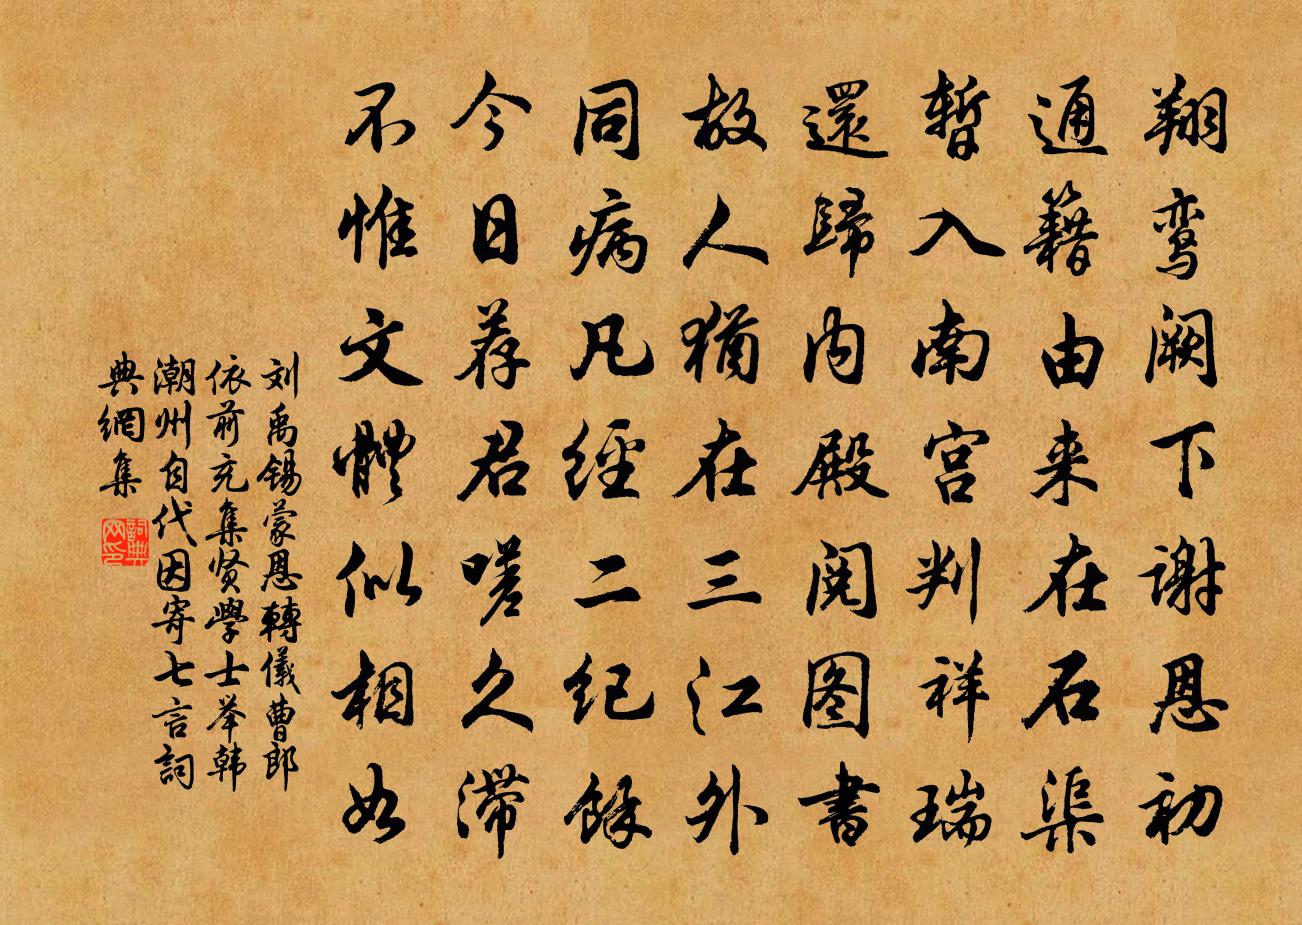 翔鸾阙下謝恩初
通籍由来在石渠
暫入南宫判祥瑞
還歸内殿阅图書
故人猶在三江外
同病凡經二纪餘
今日荐君嗟久滞
不惟文體似相如
刘禹锡蒙恩轉儀曹郎
依前充集贤學士举韩
潮州自代因寄七言詞
典網集
詞典
网印